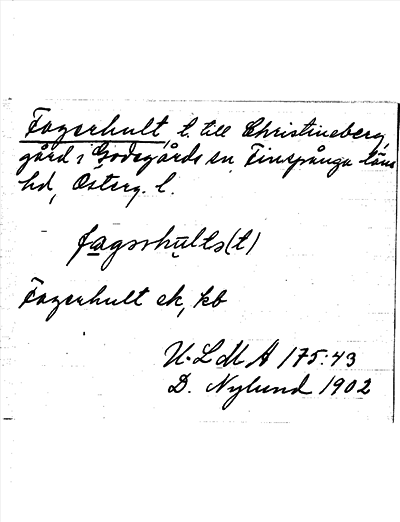 Fagerhult, t. till Christineberg,
gård i Godegårds sn. Finspånga läns
hd, Österg. l.
fagsrhults(t)
Fagerhult ek, kb
U.L.M.A 175:43
D. Nylund 1902